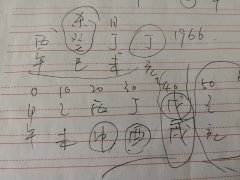 丙 癸 丁 丁 1966.
午 巳 未
0 10 20 30 40 50
甲 乙 丙 丁 戊 己
午 未 申 酉 戌 亥